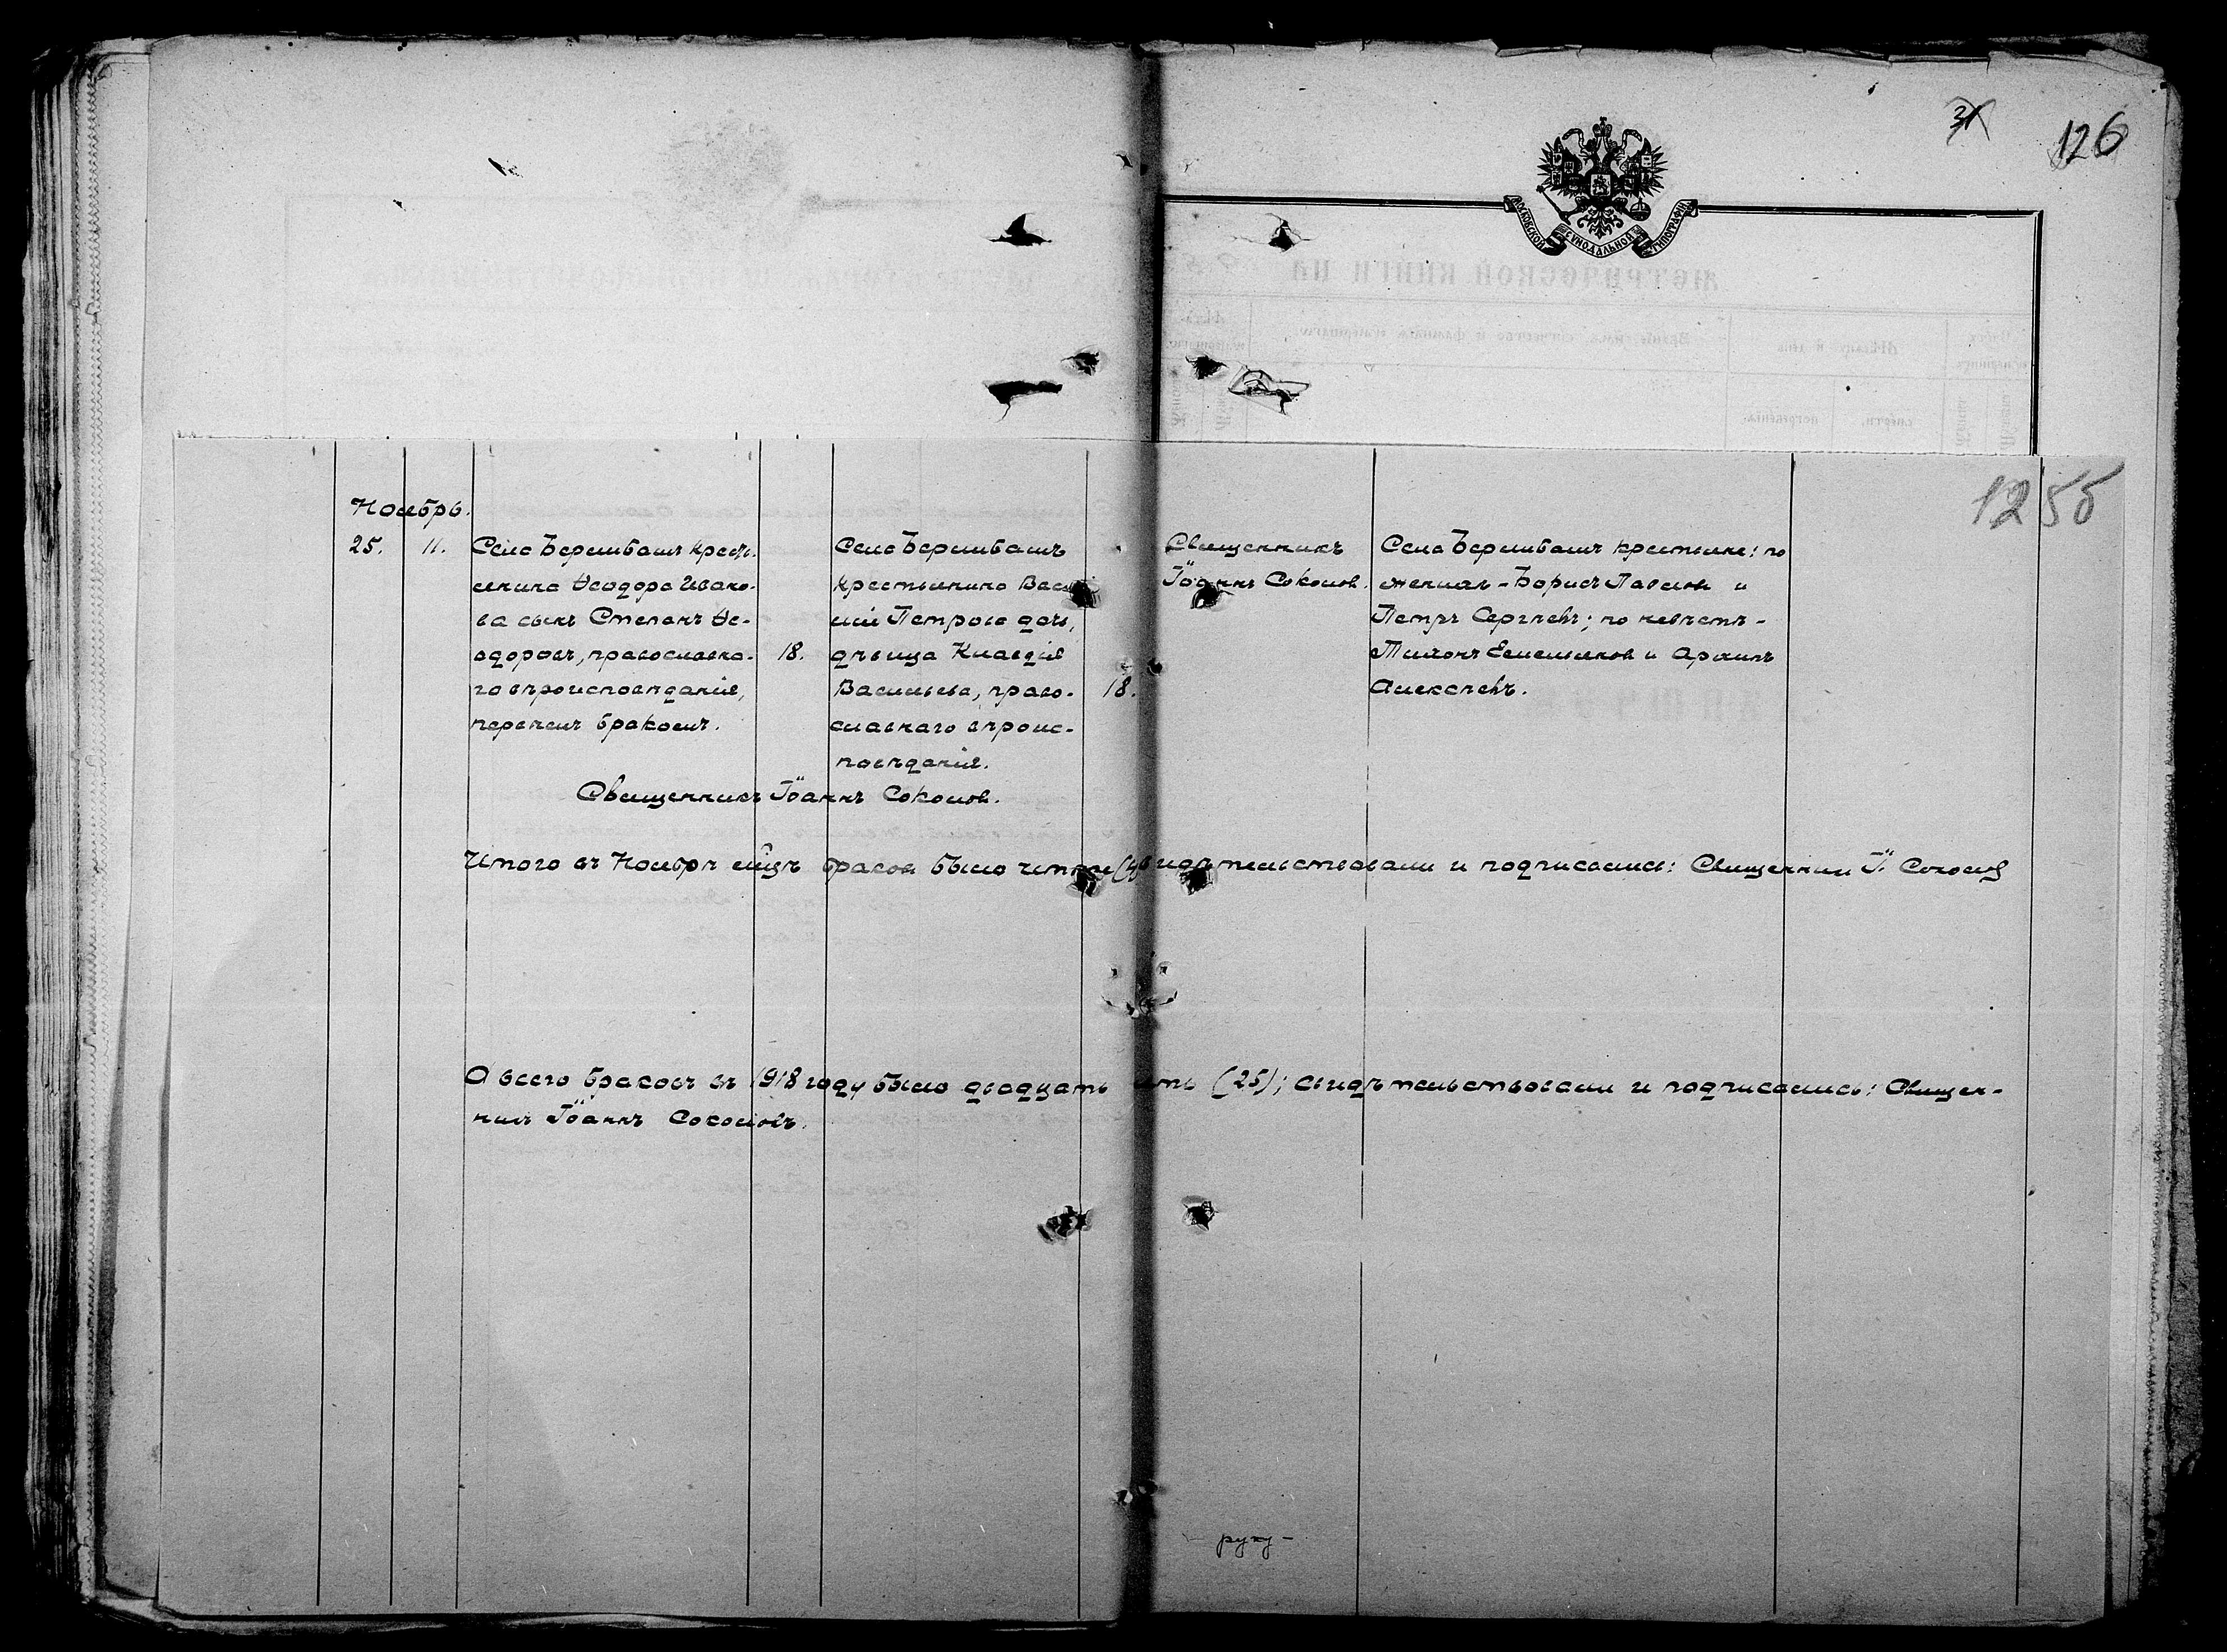 31
126
МОСКОВСКОЙ СѴНОДАЛЬНОЙ ТИПОГРАФІИ
1255
Ноябрь.
25. 11.
Село Бермибашъ кресть-
янина Ѳеодора Ивано-
ва сынъ Стефанъ Ѳе-
одоровъ, православна-
го вѣроисповѣданія,
первымъ бракомъ.
18.
Село Бермибашъ
крестьянина Васи
лія Петрова дочь,
дѣвица Клавдія
Васильева, право-
славнаго вѣроис-
повѣданія.
18.
Священникъ
Іоаннъ Соколов.
Село Бермибашъ крестьяне: по
женихѣ - Борисъ Павлов и
Петръ Сергѣевъ; по невѣстѣ -
Тихонъ Емельянов и Архипъ
Алексѣевъ.
Священникъ Іоаннъ Соколов.
Итого въ Ноябрѣ мцѣ браков было четыре (4) видѣтельствовали и подписались: Священник І. Соколов
А всего браковъ въ 1918 году было двадцать ять (25); свидѣтельствовали и подписались: Священ-
никъ Іоаннъ Соколовъ.
- руку -